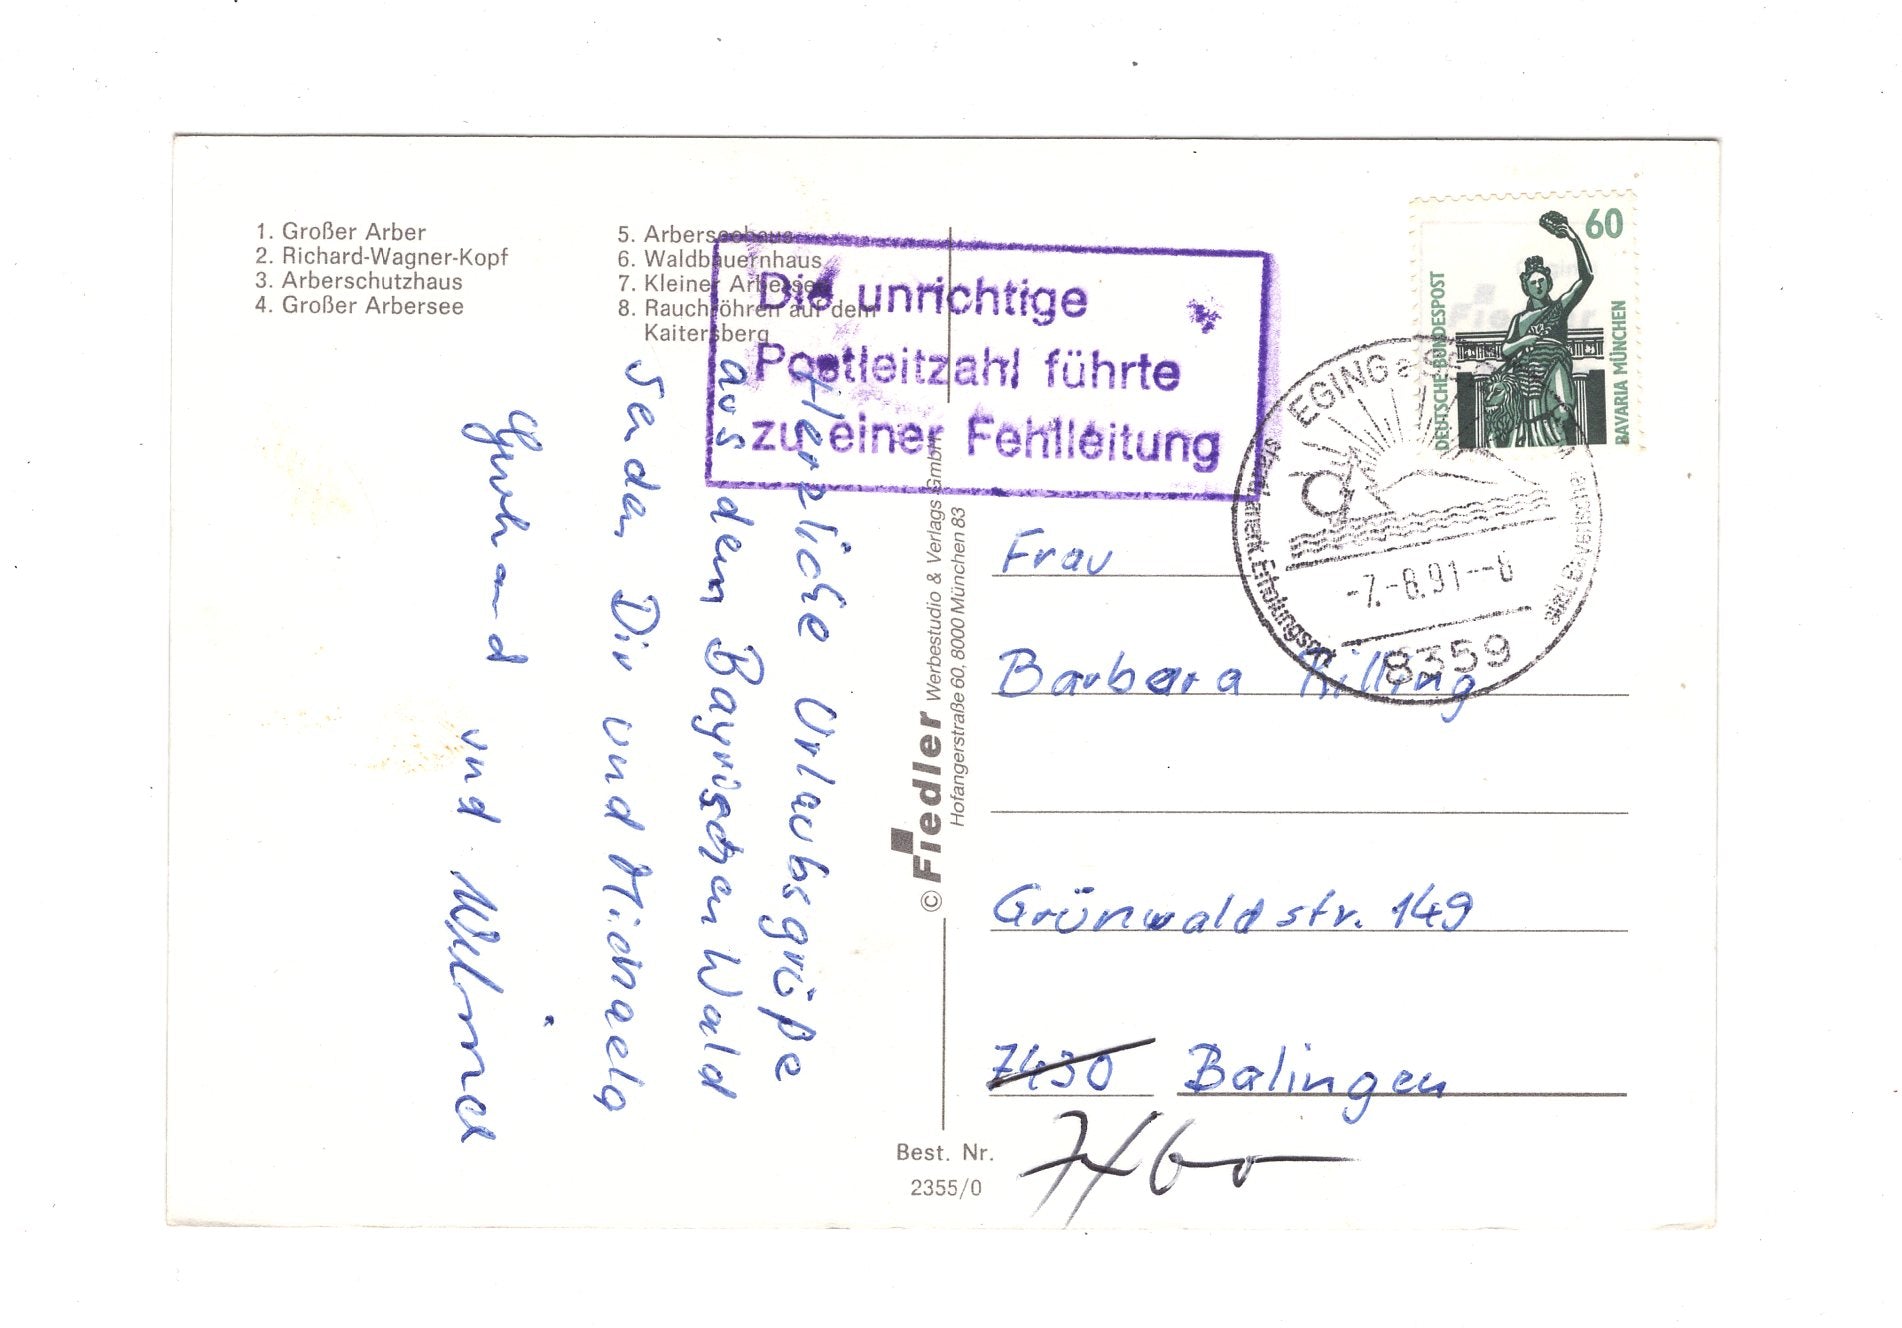 1. Großer Arber
2. Richard-Wagner-Kopf
3. Arberschutzhaus
4. Großer Arbersee
5. Arberseehaus
6. Waldbauernhaus
7. Kleiner Arbersee
8. Rauchröhren auf dem
Kaitersberg
Die unrichtige
Postleitzahl führte
zu einer Fehlleitung
60
DEUTSCHE BUNDESPOST
BAVARIA MÜNCHEN
EGING a.
Erholungsort
-7.-8.91--8
8359
Herzliche Urlaubsgrüße
aus dem Bayrischen Wald
senden Dir und Michaela
Gerhard und
© Fiedler Werbestudio & Verlags GmbH
Hofangerstraße 60, 8000 München 83
Frau
Barbara Killing
Grünwaldstr. 149
7430 Balingen
7460
Best. Nr.
2355/0